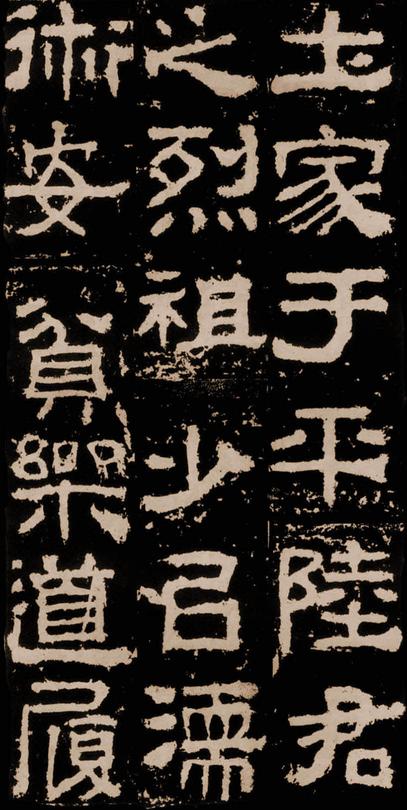 土家于平陸君
之烈祖少以濡
術安貧樂道履